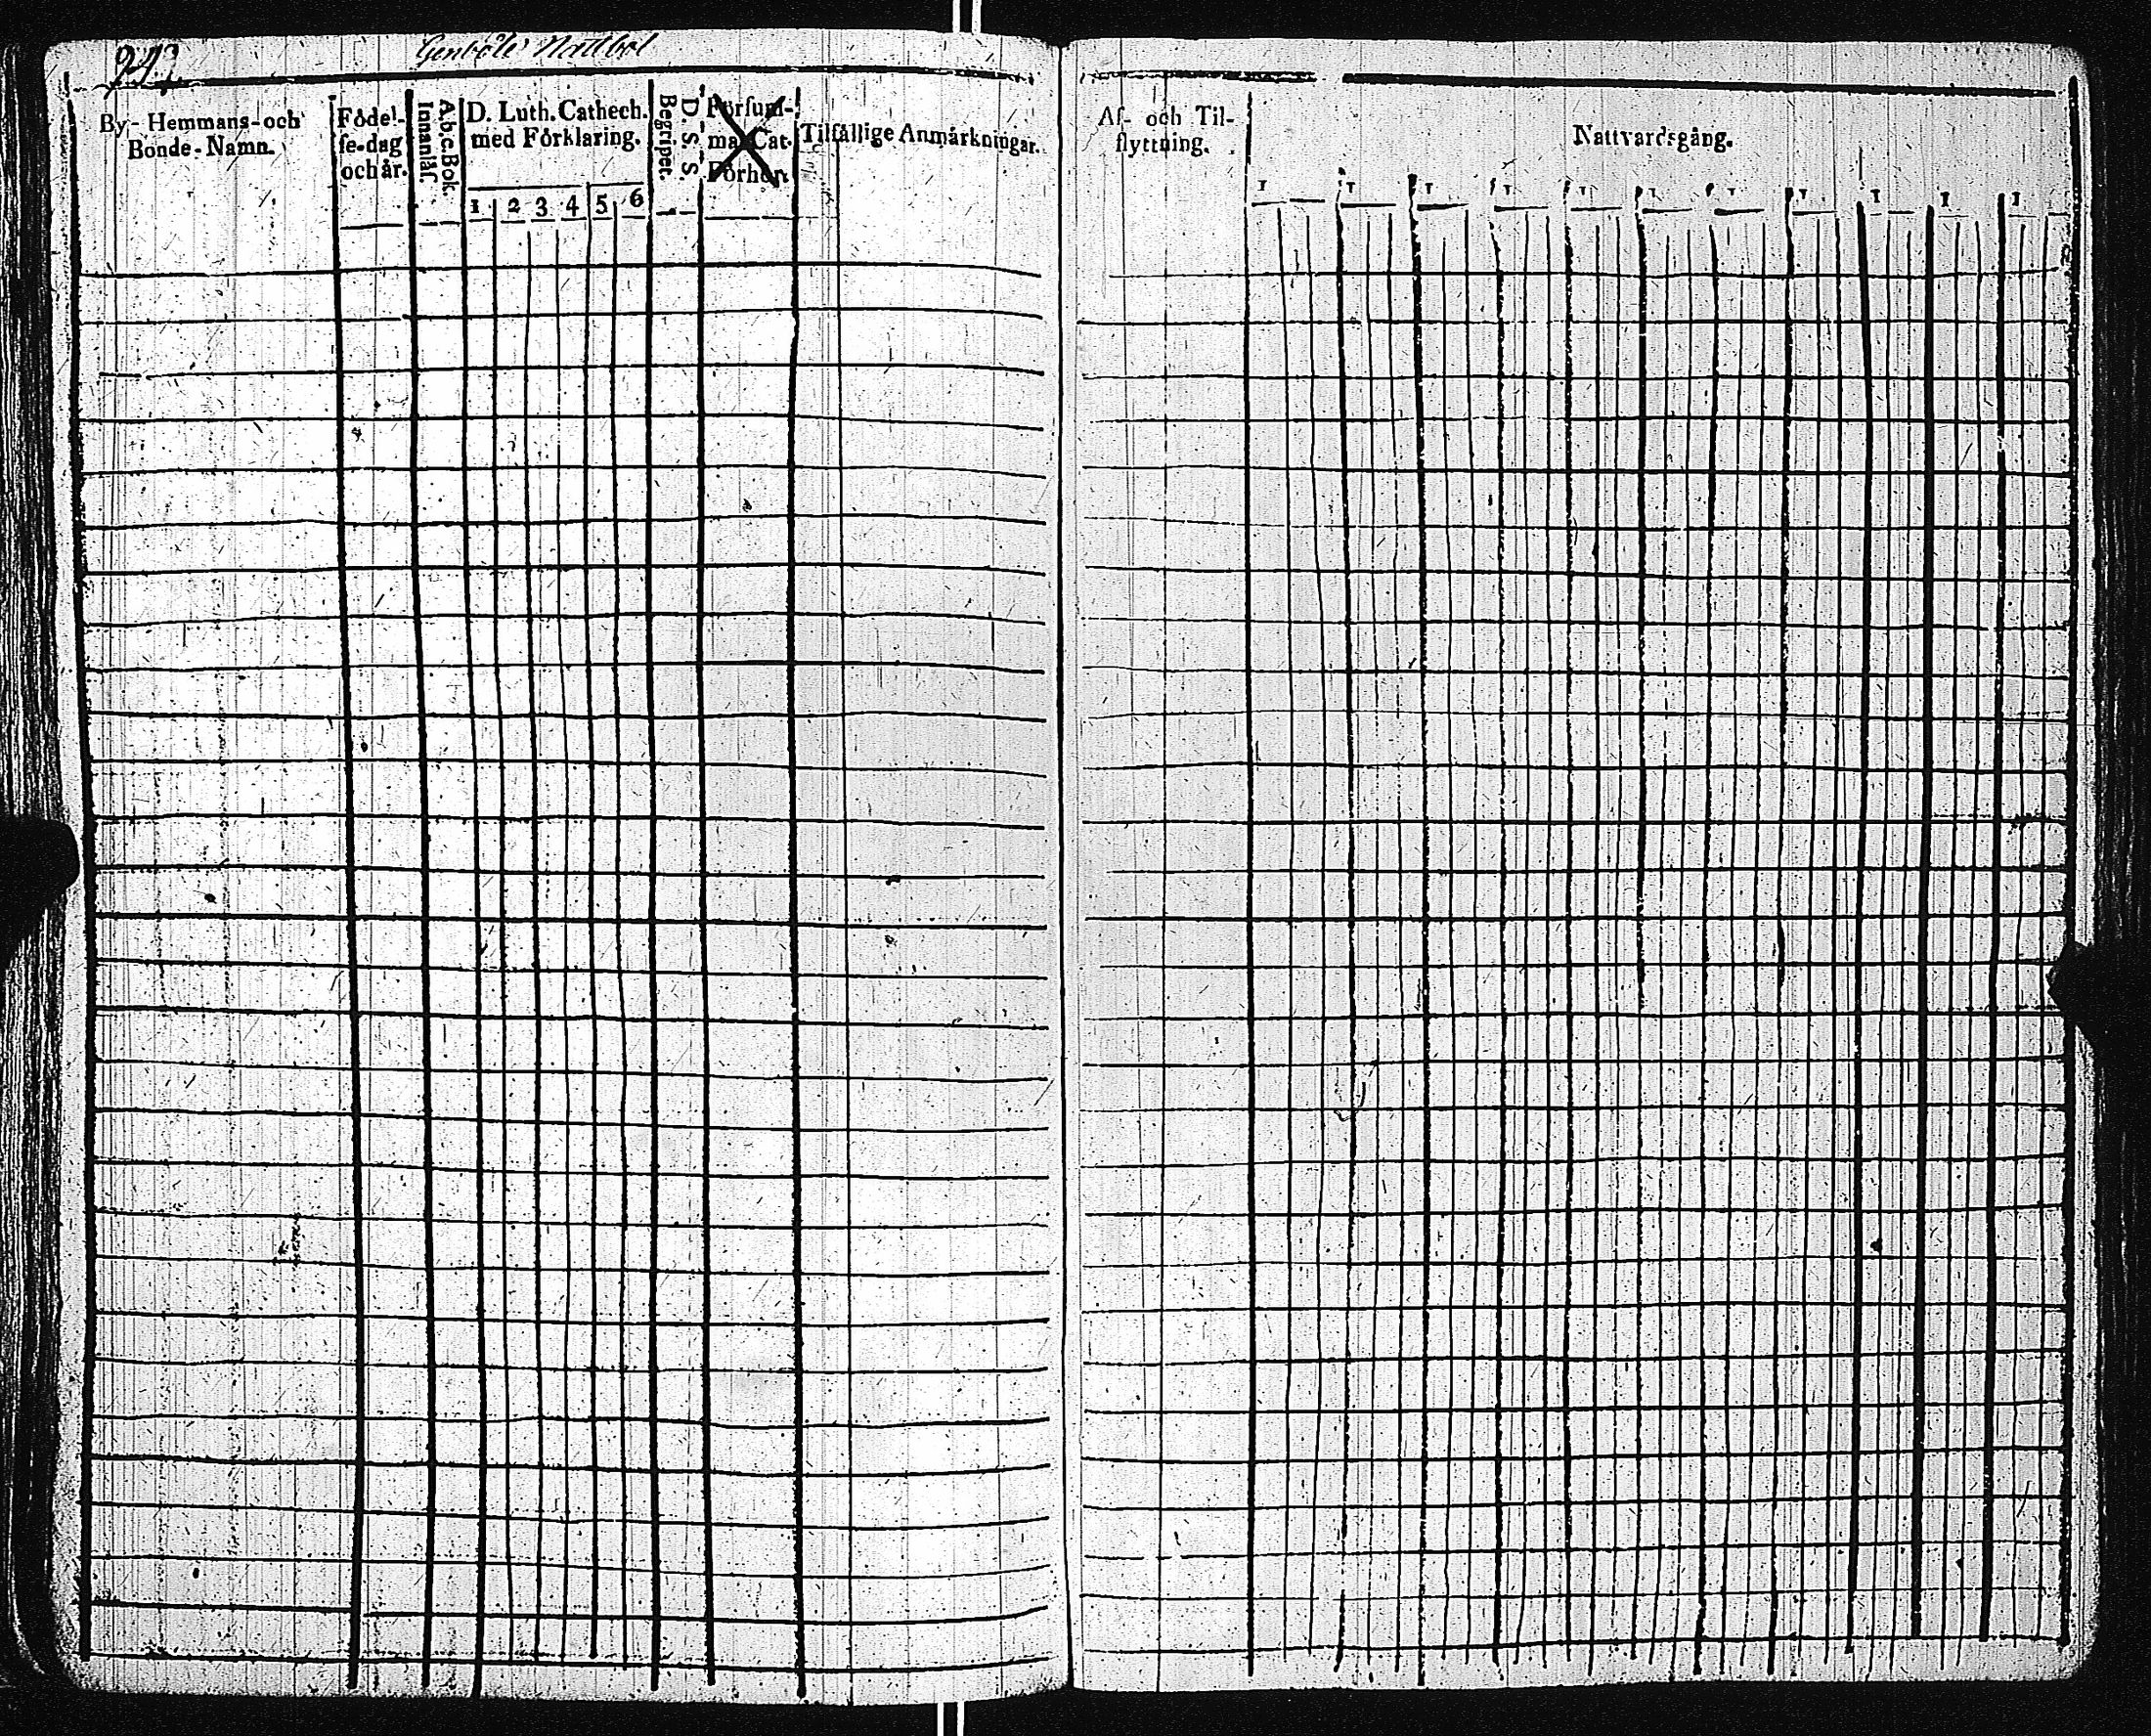 Genböle Nattbol
By- Hemmans- och
Bonde-Namn.
Födel-
se-dag
och år.
A.b.c.Bok.
Innanläs.
D. Luth. Cathech.
med Förklaring.
1 2 3 4 5 6
D. S. S.
Begripet.
Försum-
ma Cat.
Förhör.
Tilfällige Anmärkningar.
Af- och Til-
flyttning.
Nattvardsgång.
1 1 1 1 1 1 1 1 1 1 1